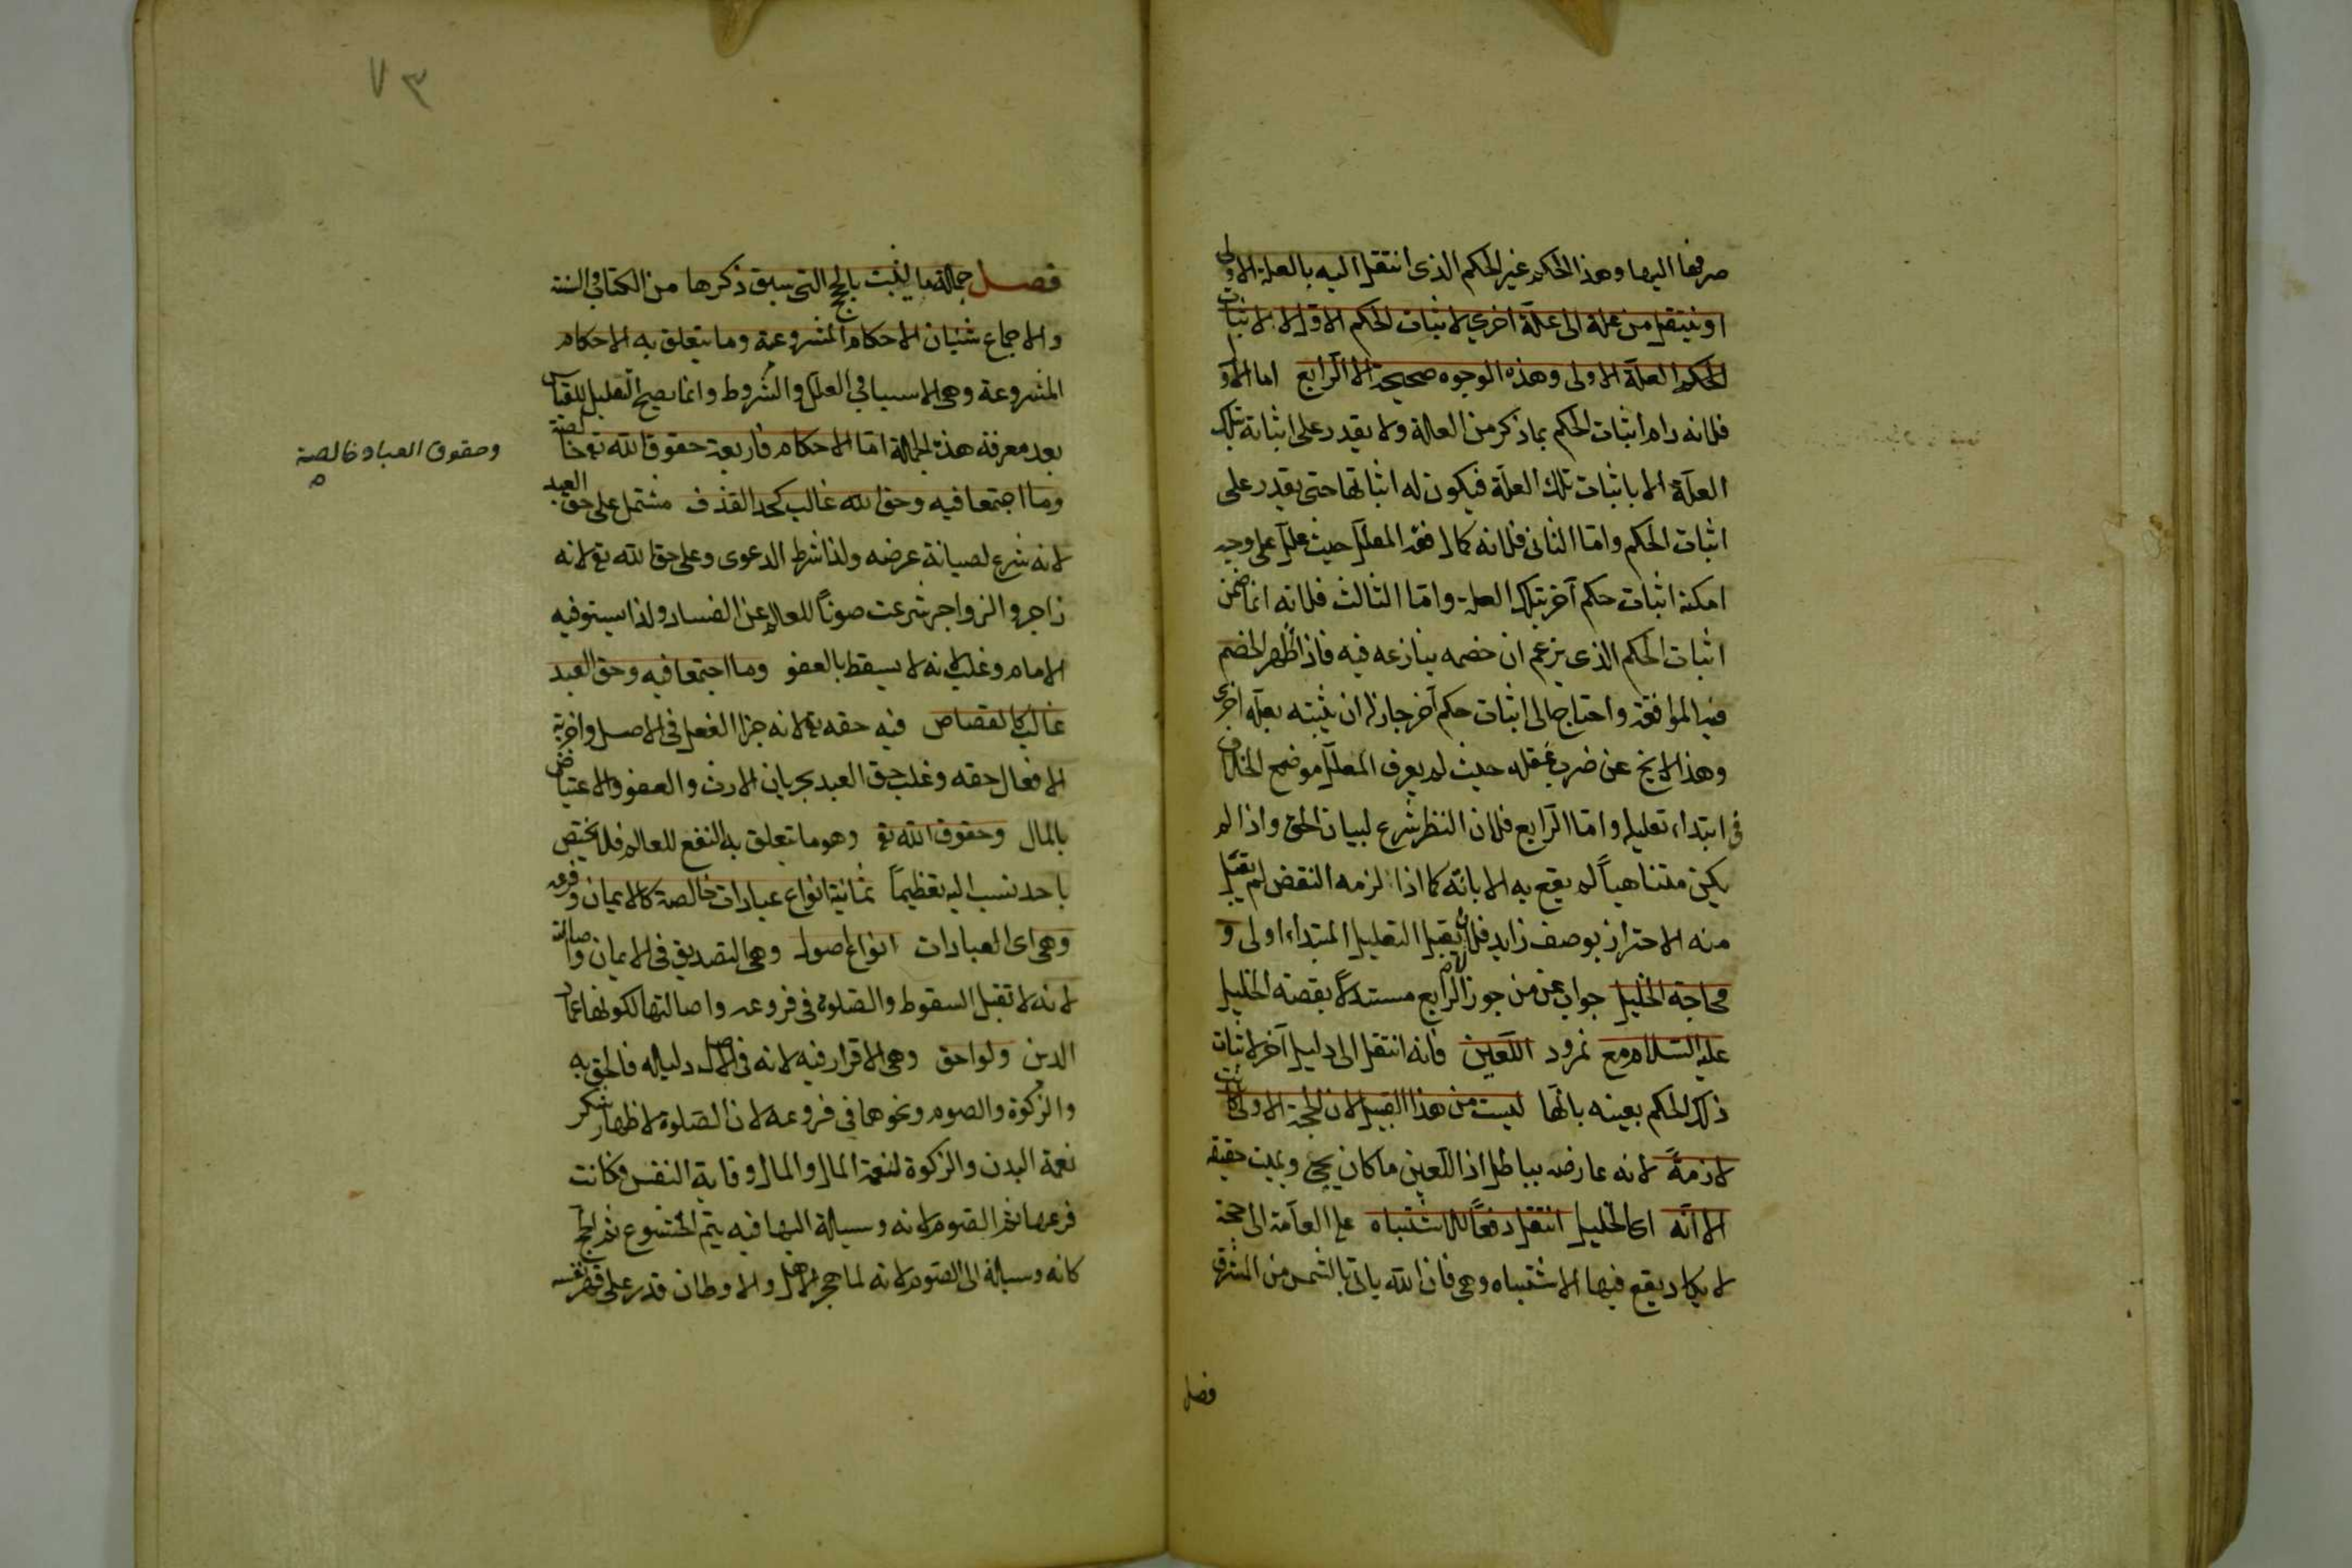 صرفها اليها وهذا الحكم غير الحكم الذى انتقل اليه بالعلة الاولى
او ينتقل من علة الى علة اخرى لاثبات الحكم الاول لا لاثبات
الحكم العلة الاولى وهذه الوجوه صحيحة الا الرابع اما الاول
فلانه رام اثبات الحكم بما ذكر من العلة ولا يقدر على اثباته بتلك
العلة الا باثبات تلك العلة فيكون له اثباتها حتى يقدر على
اثبات الحكم واما الثانى فلانه كمال فقه المعلل حيث علل على وجه
امكنه اثبات حكم آخر بتلك العلة واما الثالث فلانه انما ضمن
اثبات الحكم الذى يزعم ان خصمه ينازعه فيه فاذا ظهر الخصم
فيه الموافقة واحتاج الى اثبات حكم آخر جاز له ان يثبته بعلة اخرى
وهذا لا يخ عن ضرب غفلة حيث لم يعرف المعلل موضع الخلاف
فى ابتداء تعليله واما الرابع فلان النظر شرع لبيان الحق واذا لم
يكن متناهياً لم يقع به الابانة كما اذا لزمه النقض لم يقبل
منه الاحتراز بوصف زايد فلان يقبل التعليل المبتداء اولى و
محاجة الخليل جواب عن من جوز الرابع مستدلاً بقصة الخليل
عليه السلام مع نمرود اللعين فانه انتقل الى دليل آخر لاثبات
ذلك الحكم بعينه بانها ليست من هذا القبيل لان الحجة الاولى كانت
لازمةً لانه عارضه بباطل اذ اللعين ما كان يحيى ويميت حقيقة
الا انه اى الخليل انتقل دفعاً للاشتباه على العامة الى حجة
لا يكاد يقع فيها الاشتباه وهى فان الله ياتى بالشمس من المشرق
فصل
٧٣
فصل جملة ما يثبت بالحجج التى سبق ذكرها من الكتاب والسنة
والاجماع شيئان الاحكام المشروعة وما يتعلق به الاحكام
المشروعة وهى الاسباب والعلل والشروط وانما يصح التعليل للقياس
بعد معرفة هذه الجملة اما الاحكام فاربعة حقوق الله تع خالصة
وحقوق العباد خالصة
وما اجتمعا فيه وحق الله غالب كحد القذف مشتمل على حق العبد
لانه شرع لصيانة عرضه ولذا شرط الدعوى وعلى حق الله تع لانه
زاجر والزواجر شرعت صوناً للعالم عن الفساد ولذا يستوفيه
الامام وغلب لانه لا يسقط بالعفو وما اجتمعا فيه وحق العبد
غالب كالقصاص فيه حقه تع لانه جزاء الفعل فى الاصل واجزية
الافعال حقه وغلب حق العبد بجريان الارث والعفو والاعتياض
بالمال وحقوق الله تع وهو ما يتعلق به النفع للعالم فلا يختص
باحد نسب اليه تعظيماً ثمانية انواع عبادات خالصة كالايمان وفروعه
وهى اى العبادات انواع اصول وهى التصديق فى الايمان واصالته
لانه لا تقبل السقوط والصلوة فى فروعه واصالتها لكونها عماد
الدين ولواحق وهى الاقرار فيه لانه فى الاصل دليله فالحق به
والزكوة والصوم ونحوهما فى فروعه لان الصلوة لاظهار شكر
نعمة البدن والزكوة لنعمة المال والمال وقاية النفس فكانت
فرعها ثم الصوم لانه وسيلة اليها فيه يتم الخشوع ثم الحج
كانه وسيلة الى الصوم لانه لما هجر الاهل والاوطان قدر على قهر نفسه